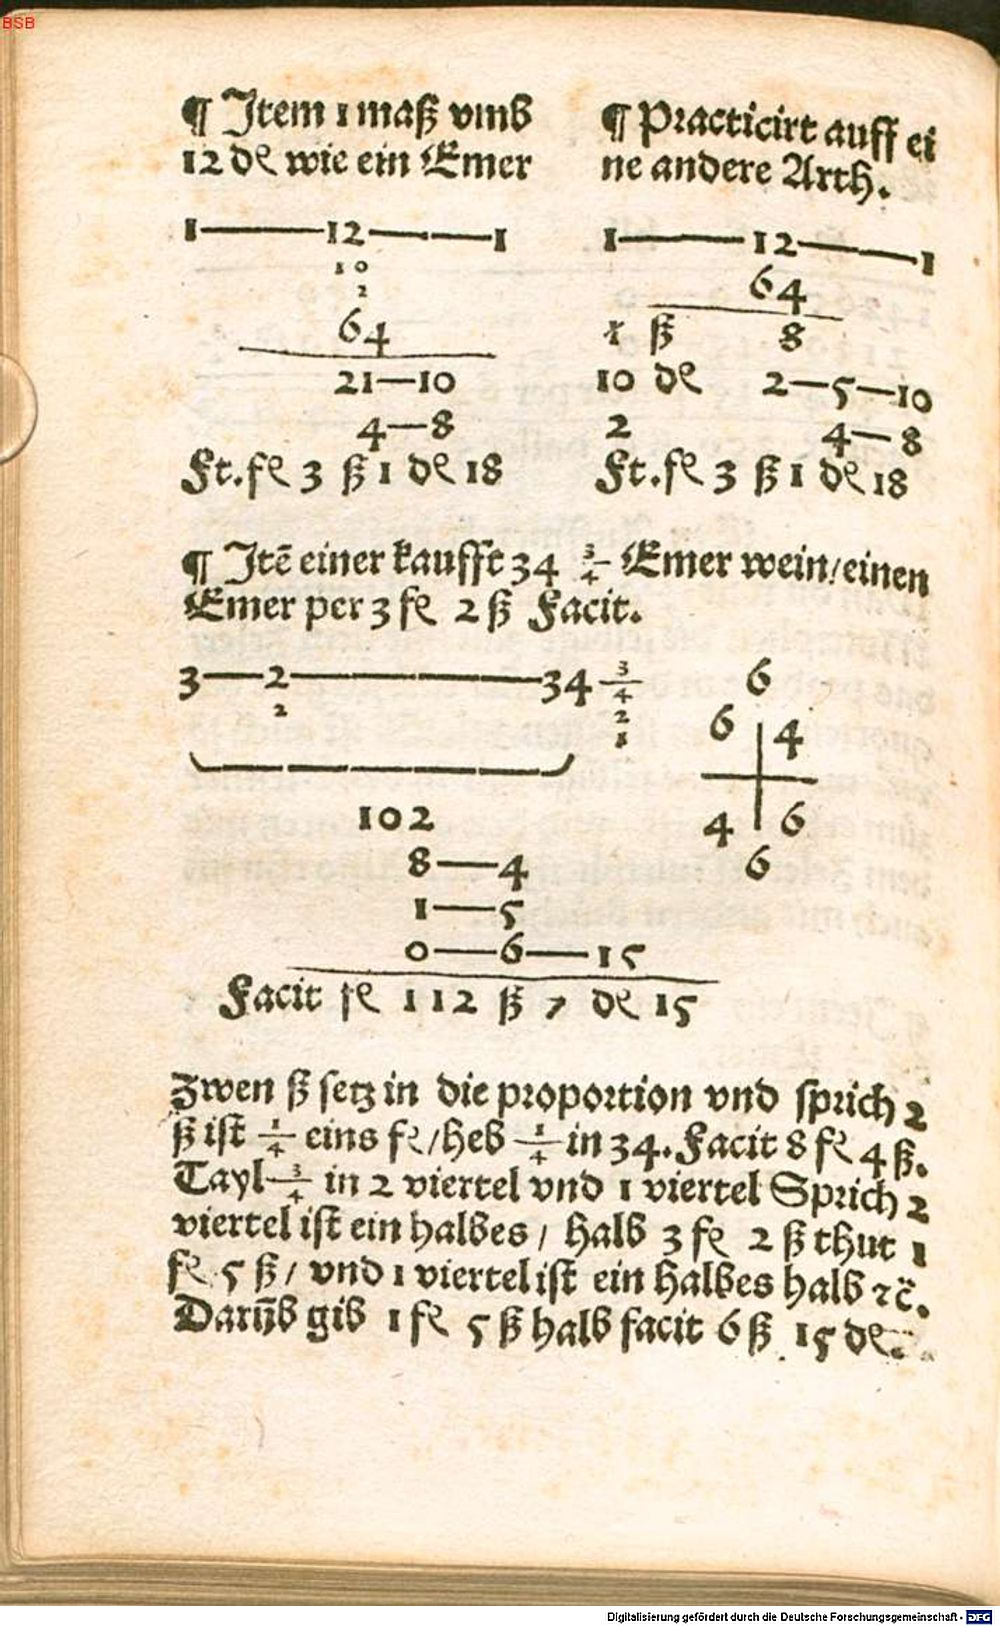 BSB
¶ Item 1 maß vmb
12 de wie ein Emer
1——12——1
10
2
64
21—10
4—8
Ft. fe 3 ß 1 de 18
¶ Practicirt auff ei
ne andere Arth.
1——12——1
64
1 ß 8
10 de 2—5—10
2 4—8
Ft. fe 3 ß 1 de 18
¶ Itē einer kaufft 34 3/4 Emer wein/einen
Emer per 3 fe 2 ß Facit.
3——2————34 3/4
2 2
1
102
8——4
1——5
0——6——15
Facit fe 112 ß 7 de 15
6
6 4
4 6
6
Zwen ß setz in die proportion vnd sprich 2
ß ist 1/4 eins fe/heb 1/4 in 34. Facit 8 fe 4 ß.
Tayl 3/4 in 2 viertel vnd 1 viertel Sprich 2
viertel ist ein halbes / halb 3 fe 2 ß thut 1
fe 5 ß / vnd 1 viertel ist ein halbes halb ꝛc̄.
Darūb gib 1 fe 5 ß halb facit 6 ß 15 de.
Digitalisierung gefördert durch die Deutsche Forschungsgemeinschaft - DFG